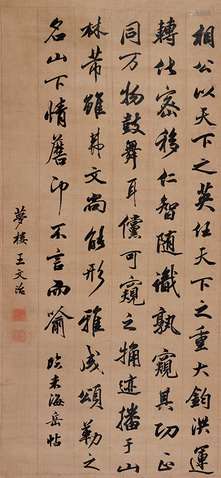 相公以天下之英任天下之重大鈞洪運
轉化密移仁智隨識孰窺其功正
同万物鼓舞耳儻可窺之觕迹播于山
林芾雖弊文尚能形雅成頌勒之
名山下情不言而喻 臨米海岳帖
夢樓王文治